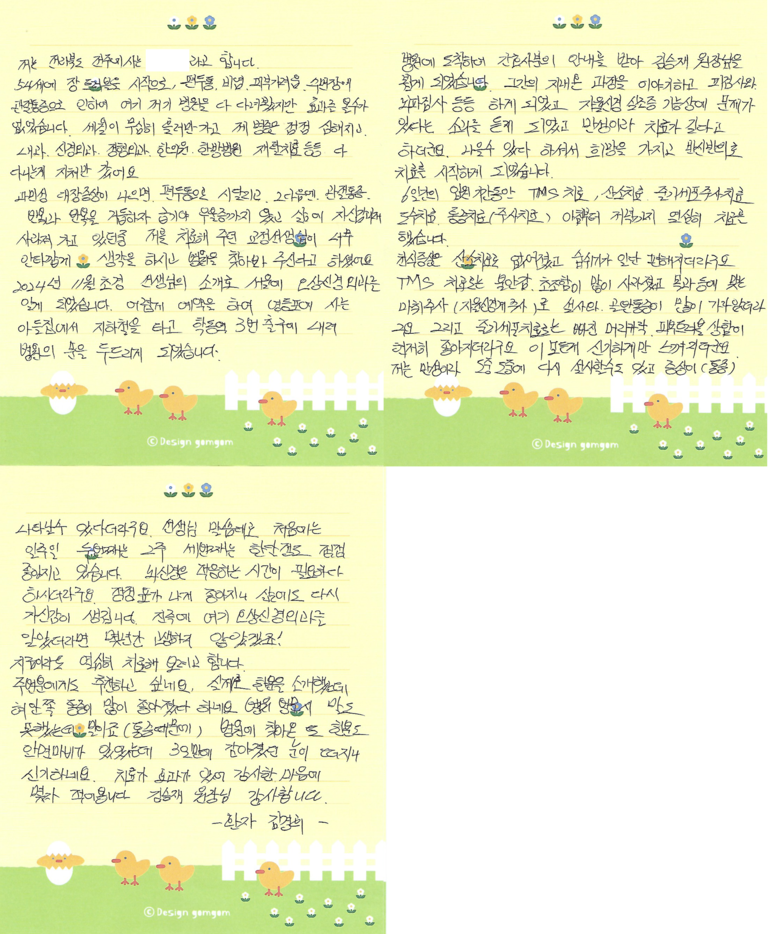 저는 전라북도 전주에 사는 라고 합니다.
54세에 장 을 시작으로, 편두통, 비염, 피부가려움, 수면장애
관절통증으로 인하여 여기 저기 병원을 다 다녀봤지만 효과를 볼수가
없었습니다. 세월이 무심히 흘러만가고 제 병은 점점 심해지고
내과, 신경외과, 정형외과, 한의원, 한방병원 재활치료등등 다
다니게 지쳐만 갔어요
과민성 대장증상이 나으면, 편두통으로 시달리고, 그다음엔, 관절통증,
반복과 반복을 거듭하자 급기야 우울증까지 왔고 삶이 자신감마저
사라져 가고 있던중 저를 치료해 주던 교정선생님이 너무
안타깝게 생각을 하시고 병원을 찾아봐 주신다고 하셨어요
2024년 11월초경 선생님의 소개로 서울에 오상신경외과를
알게 되었습니다. 어렵게 예약을 하여 영등포에 사는
아들집에서 지하철을 타고 학동역 3번 출구에 내려
병원의 문을 두드리게 되었습니다.
병원에 도착하여 간호사분의 안내를 받아 김승재 원장님을
뵙게 되었습니다. 그간의 지내온 과정을 이야기하고 피검사와
뇌파검사 등등 하게 되었고 자율신경 실조증 기능상에 문제가
있다는 소리를 듣게 되었고 만성이라 치료가 길다고
하더군요. 나을수 있다 하셔서 희망을 가지고 반신반의로
치료를 시작하게 되었습니다.
6일간의 입원기간동안 TMS 치료, 산소치료, 줄기세포주사치료
도수치료, 통증치료(주사치료) 아침부터 저녁까지 열심히 치료를
했습니다.
천식증상은 산소치료로 없어졌고 숨쉬기가 일단 편해지더라구요
TMS 치료로는 불안감, 초조함이 많이 사라졌고 목과 등에 맞는
마취주사 (자율신경계주사)로 설사와 골반통증이 많이 가라앉더라
구요 그리고 줄기세포치료로는 빠진 머리카락, 피부트러블 상황이
현저히 좋아지더라구요 이 모든게 신기하게만 느껴지더군요
저는 만성이라 도중 도중에 다시 설사할수도 있고 증상이 (통증)
나타날수 있다더라구요. 선생님 말씀대로 처음에는
일주일 두번째는 2주 세번째는 한달 정도 점점
좋아지고 있습니다. 뇌신경은 적응하는 시간이 필요하다
하시더라구요. 점점 몸가 나게 좋아지니 삶에도 다시
자신감이 생깁니다. 진즉에 여기 오상신경외과를
알았더라면 몇년간 고생하지 않았겠죠!
지금이라도 열심히 치료해 보려고 합니다.
주위분에게도 추천하고 싶네요. 실제로 한분을 소개했는데
허리 안쪽 통증이 많이 좋아졌다 하네요 (병원 앞에서 말도
못했는데 말이죠 (통증때문에) 병원에 찾아온 또 한분도
안면마비가 있었는데 3일만에 감아졌던 눈이 떠지니
신기하네요. 치료가 효과가 있어 감사한 마음에
몇자 적어봅니다 김승재 원장님 감사합니다.
- 환자 김경희 -
© Design gomgom
© Design gomgom
© Design gomgom